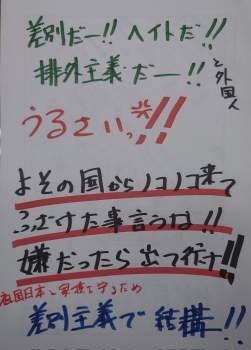 差別だー!! ヘイトだ!!
排外主義だー!!
と外国人
うるさいっ!!!
よその国からノコノコ来て
ふざけた事言うな!!
嫌だったら出て行け!!
祖国日本と家族を守るため
差別主義で結構!!